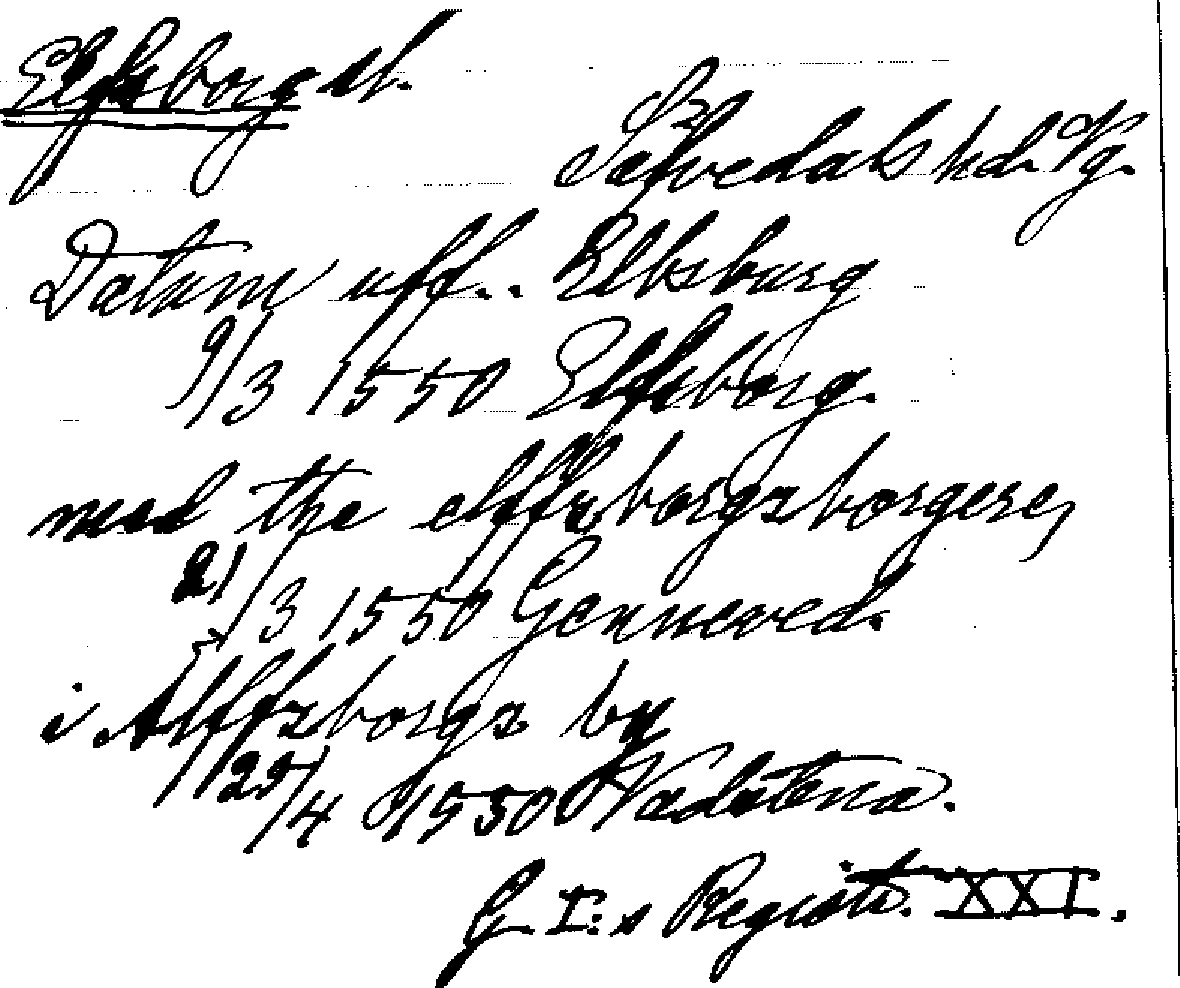 Elfsborg sl.
Sävedals hd. Vg.
Datum uff.. Elbsburg
9/3 1550 Elfsborg.
med the elffzborgzborgere,
21/3 1550 Genneved.
i Alffzborgs by
25/4 1550 Vadstena.
G. I:s Registr. XXI.